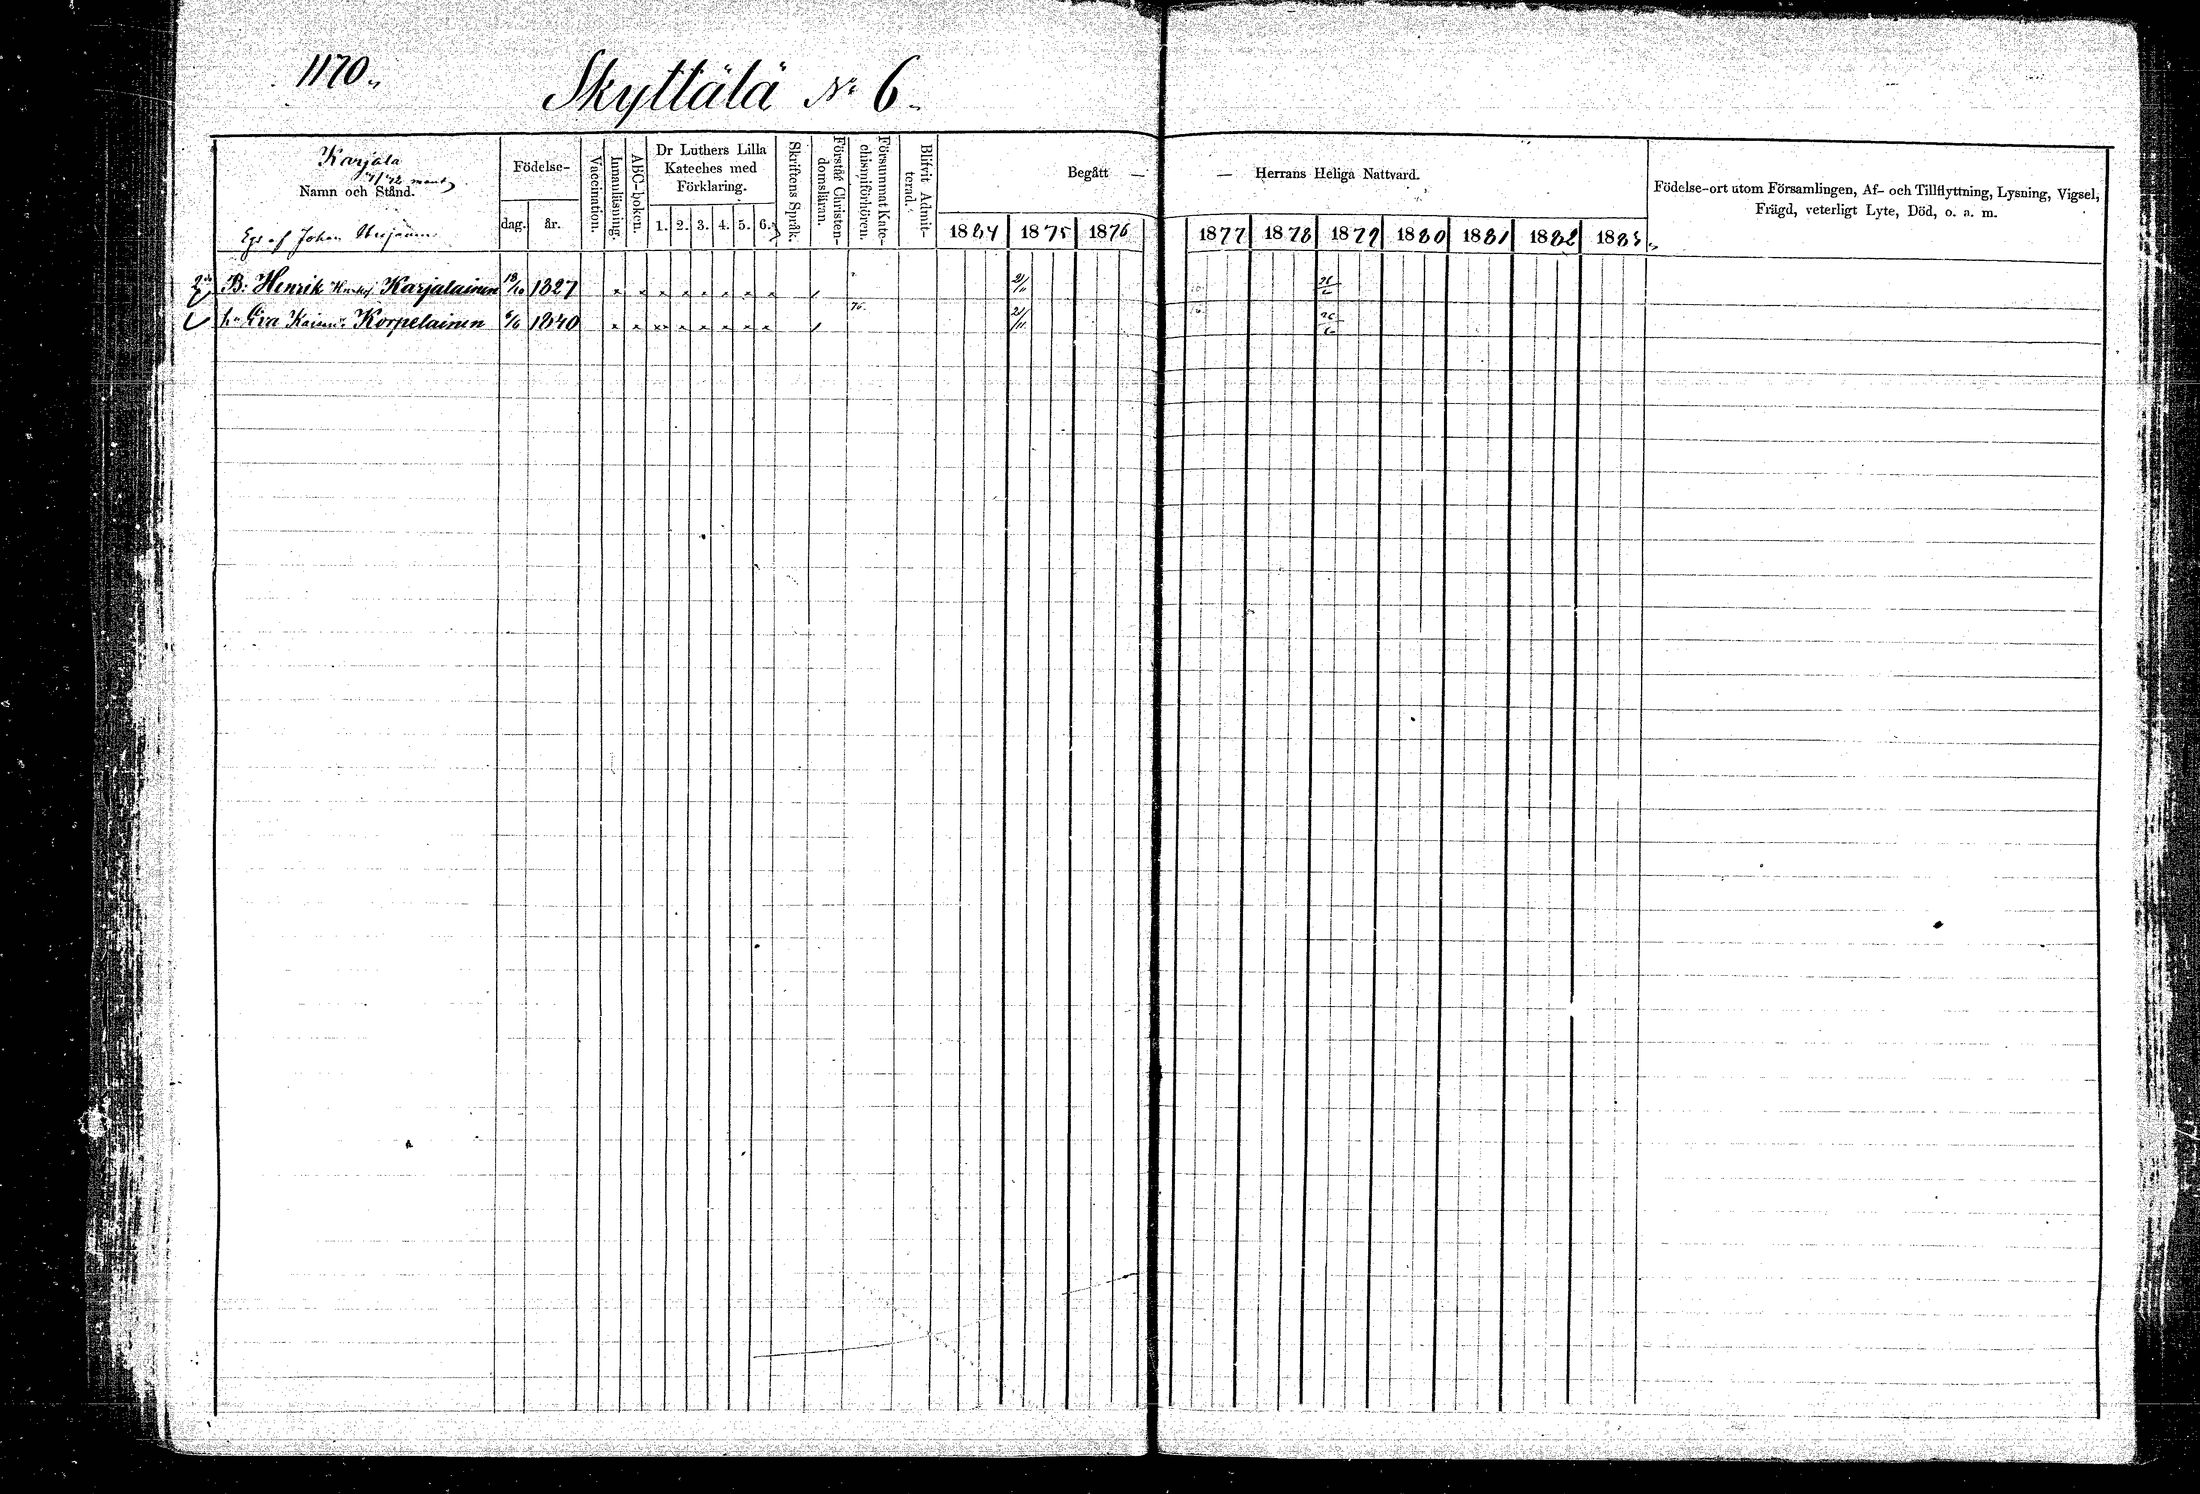 1170.
Skyttälä № 6.
Karjala
Namn och Stånd.
Egs af Johan
Födelse-
dag. år.
Vaccination.
Innanläsning.
ABC-boken.
Dr Luthers Lilla
Kateches med
Förklaring.
1. 2. 3. 4. 5. 6.
Skriftens Språk.
Förstår Christen-
domsläran.
Försummat Kate-
chismiförhören.
Blifvit Admit-
terad.
Begått — — Herrans Heliga Nattvard.
1884 1875 1876 1877 1878 1879 1880 1881 1882 1883
Födelse-ort utom Församlingen, Af- och Tillflyttning, Lysning, Vigsel,
Frägd, veterligt Lyte, Död, o. a. m.
B: Henrik Karjalainen 18/10 1827 x x x x x x x x 21/11
h. Eva Korpelainen 6/6 1840 x x x x x x x x 76. 21/11